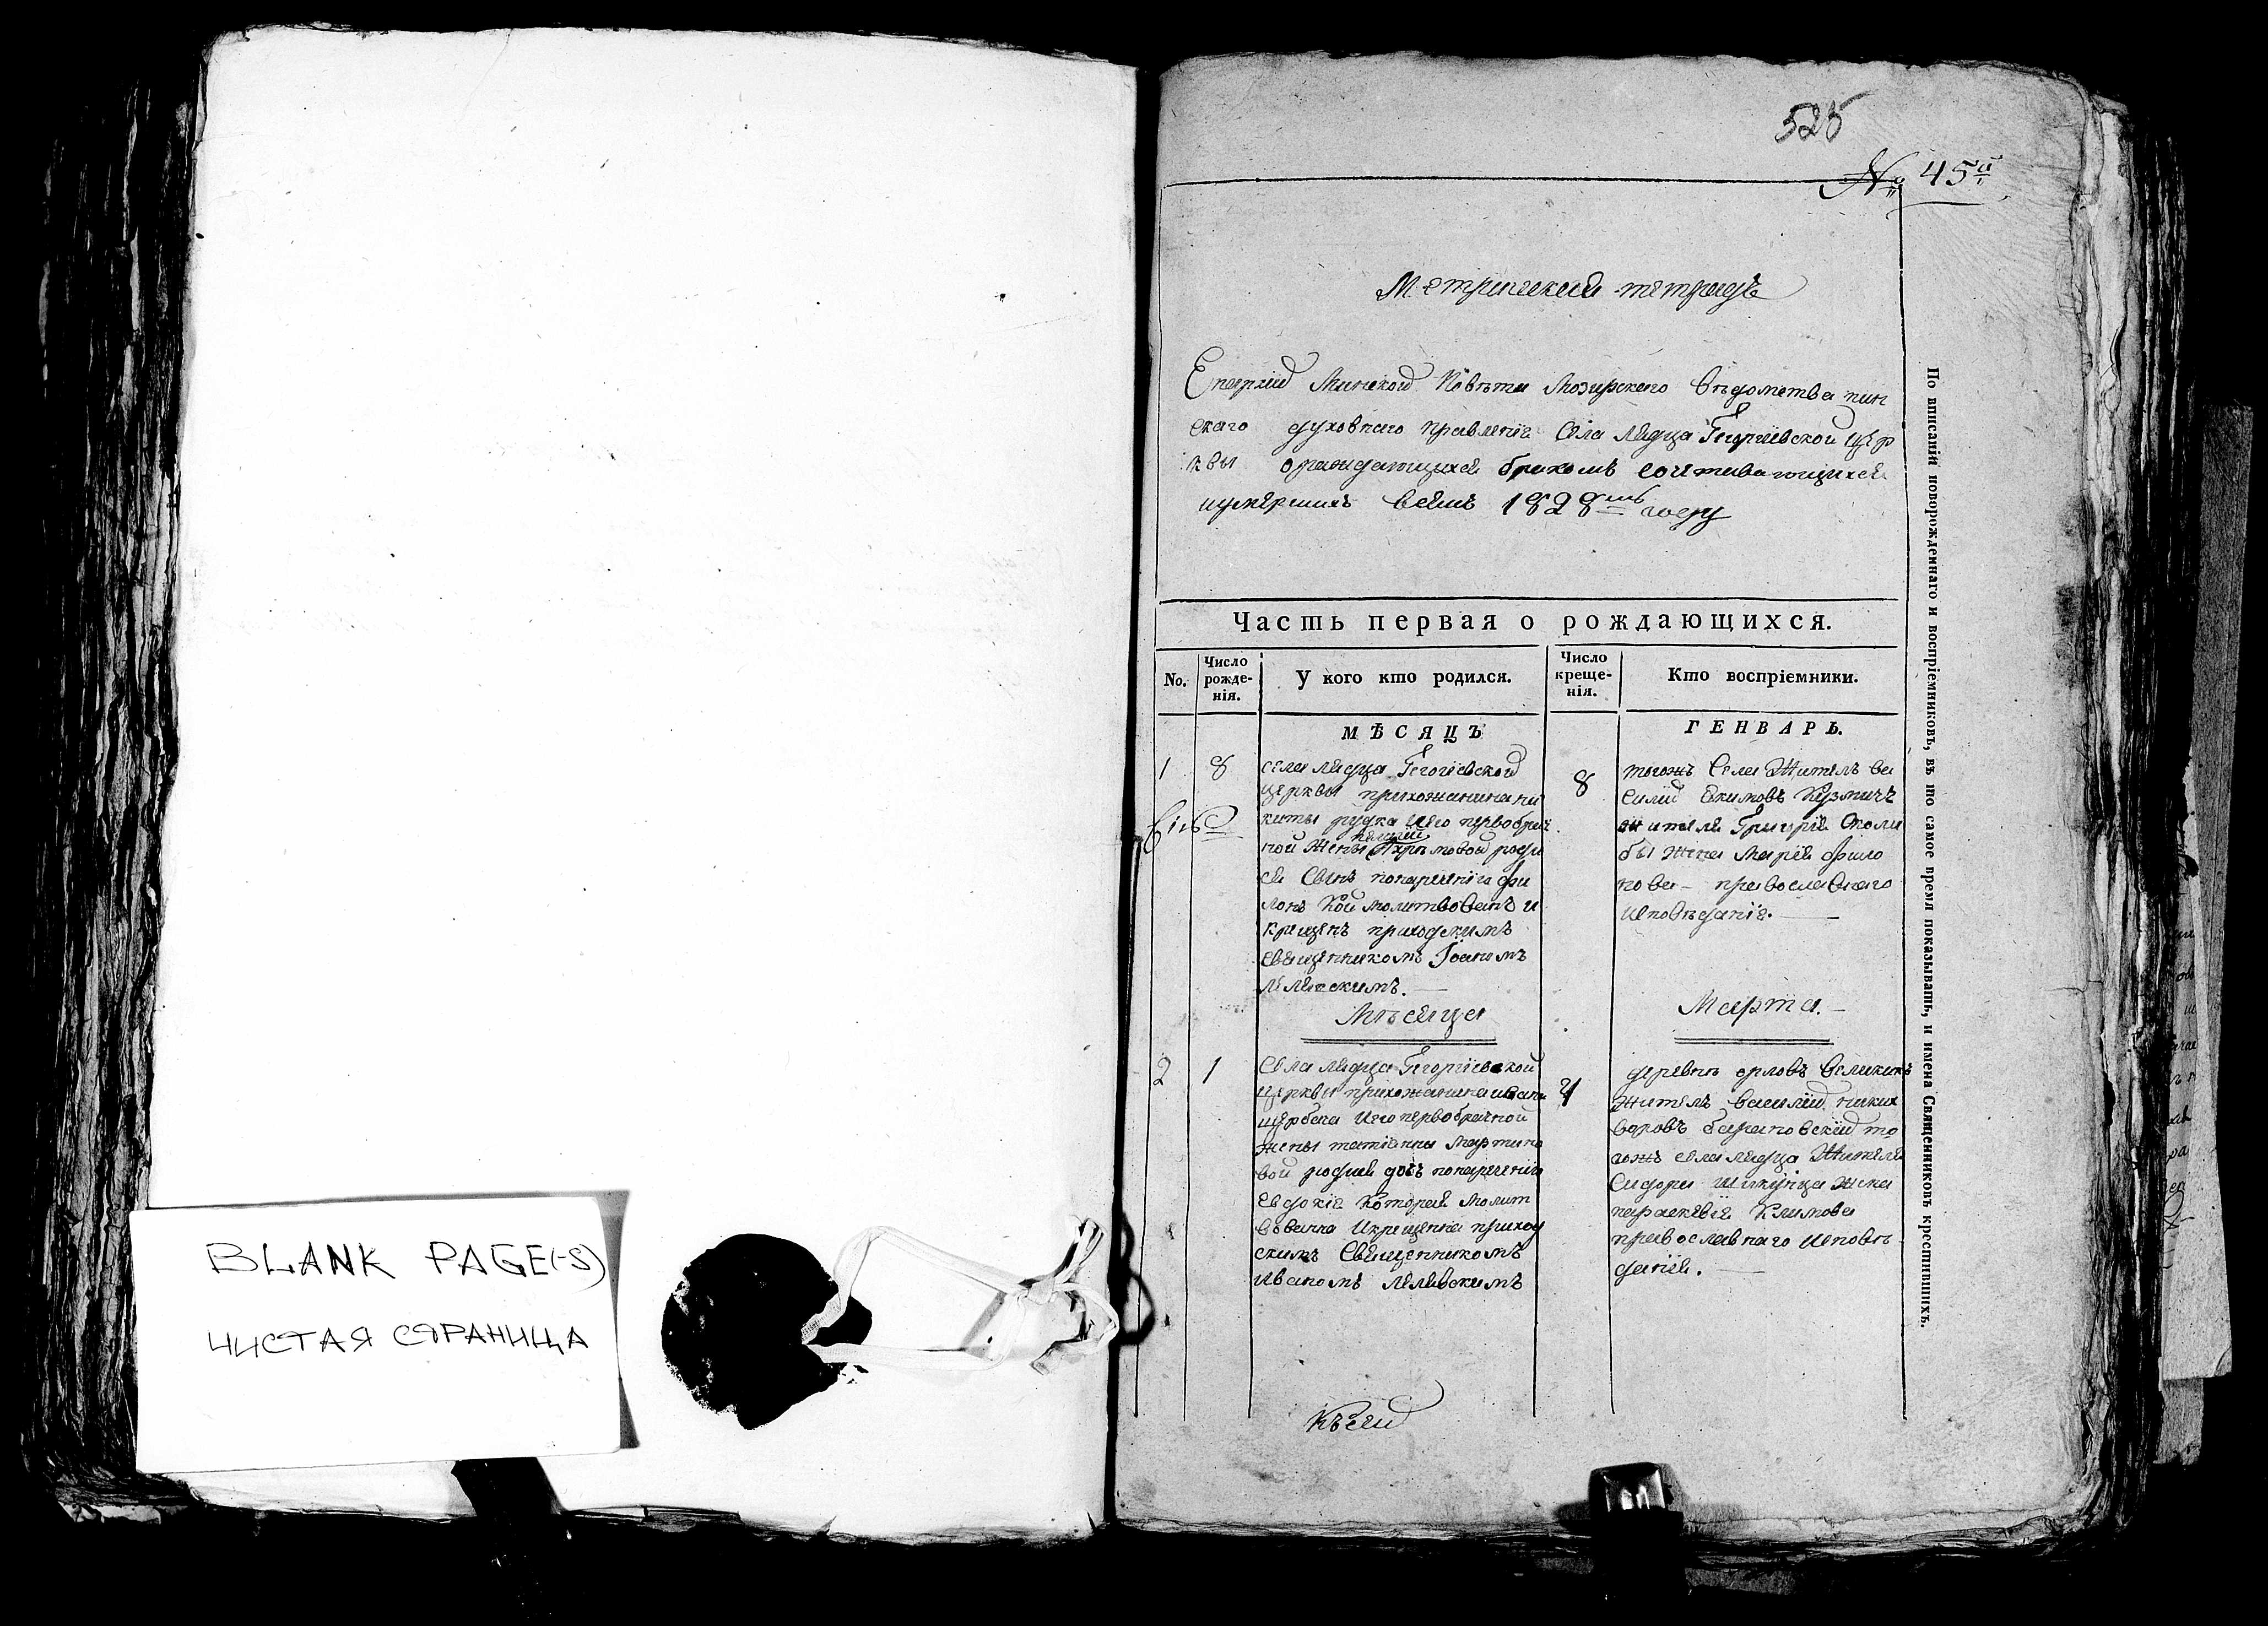 BLANK PAGE(-S)
ЧИСТАЯ СТРАНИЦА
525
№ 45й
Метрическая тетрадь
Епархіи Минской Повѣта Мозирскаго Вѣдомства пин
скаго духовнаго правленія Села Лядца Георгіевской цер
квы о раждающихся бракомъ сочитавающихся
и умершихъ всемъ 1828мъ году
Часть первая о рождающихся.
No.
Число рожде-нія.
У кого кто родился.
Число креще-нія.
Кто воспріемники.
МѢСЯЦЪ
ГЕНВАРЬ.
1
8
села лядца Гегогіевской
церквы прихожанина ни
киты рудка Иего первобрач
ной жены роди
ся Сынъ понареченіи фи
лонъ Кой молитвованъ и
крещенъ приходскимъ
священникомъ Іоаномъ
8
тогожъ Села Житель ва
силій Екимовъ Кузмичъ
жителя Григрія
бы жена Марія фило
нова - православнаго
исповѣданія.
Мѣсяца
Марта.
2
1
Села лядца Георгіевской
церквы прихожанина ивана
щербака Иего первобрачной
жены татіанны мартино
вой родися дочь понареченіи
Евдокія Которая молит
вована Икрещенна приход
скимъ Священникомъ
Иваномъ
4
деревнѣ орловъ Великихъ
житель василій никих
воровъ барановскій то
гожъ села лядца Жителя
Сидора жена
параскевія Климова
православнаго исповѣ
данія.
По вписаніи новорожденнаго и воспріемниковъ, въ то самое время показывать, и имена Священниковъ крестившихъ.